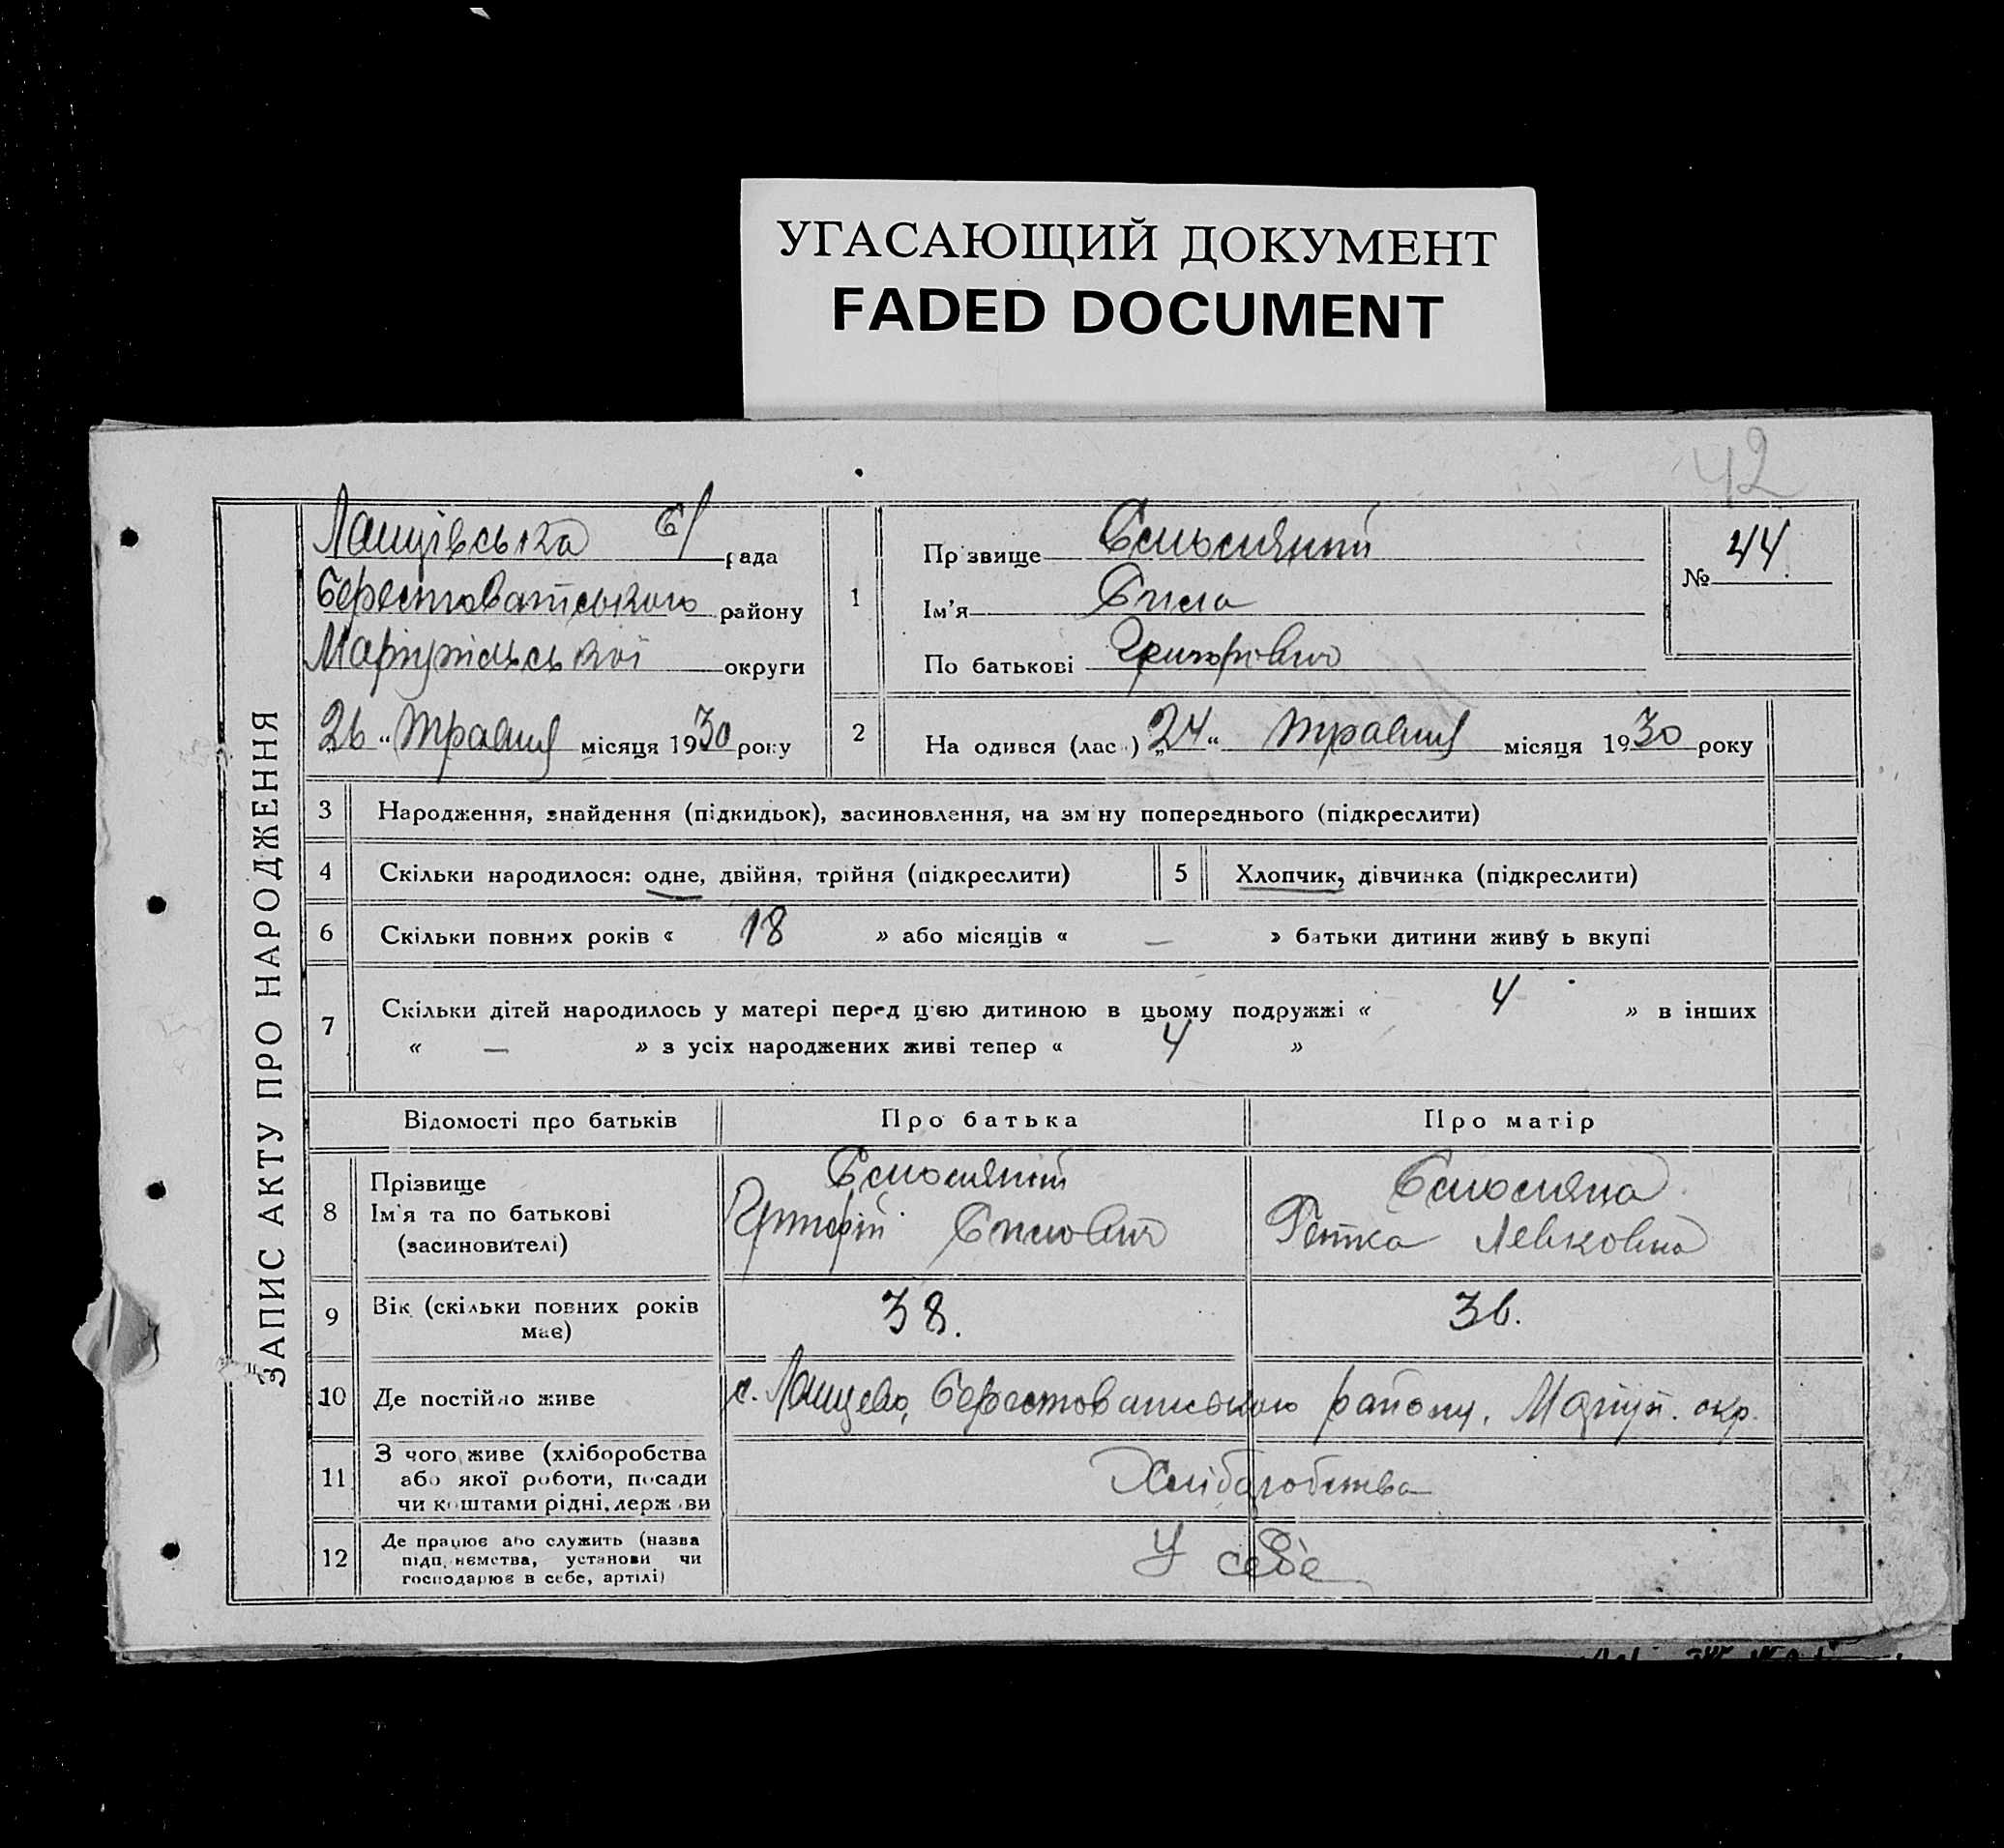 УГАСАЮЩИЙ ДОКУМЕНТ
FADED DOCUMENT
42
ЗАПИС АКТУ ПРО НАРОДЖЕННЯ
с/ рада
Берестоватського району
Маріупільської округи
26 “ травня місяця 1930 року
1
Пр звище
Ім'я
По батькові Григорович
№ 44
2
На одився (лас ) „24“ травня місяця 1930 року
3 Народження, знайдення (підкидьок), засиновлення, на зм ну попереднього (підкреслити)
4 Скільки народилося: одне, двійня, трійня (підкреслити)
5 Хлопчик, дівчинка (підкреслити)
6 Скільки повних років « 18 » або місяців « — » батьки дитини живу ь вкупі
7 Скільки дітей народилось у матері перед цією дитиною в цьому подружжі « 4 » в інших
« — » з усіх народжених живі тепер « 4 »
Відомості про батьків Про батька Про матір
8 Прізвище
Ім'я та по батькові
(засиновителі)
Григорій
Левковна
9 Вік (скільки повних років
має)
38. 36.
10 Де постійно живе с. Берестоватського району, Маріуп. окр.
11 З чого живе (хліборобства
або якої роботи, посади
чи коштами рідні, держ ви
Хліборобства
12 Де працює або служить (назва
підп, ємства, установи чи
господарює в себе, артілі)
У себе